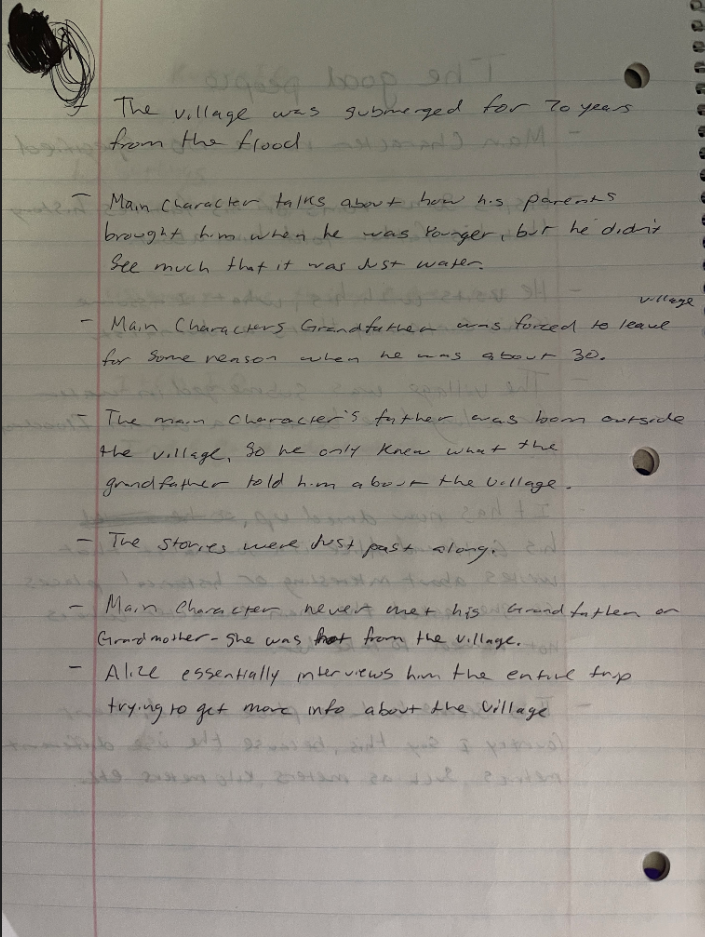 The village was submerged for 70 years
from the flood
- Main Character talks about how his parents
brought him when he was younger, but he didn't
see much that it was just water.
village
- Main Characters Grandfather was forced to leave
for some reason when he was about 30.
- The main character's father was born outside
the village, so he only knew what the
grandfather told him about the village.
- The stories were just past along.
- Main Character never met his Grandfather or
Grandmother - she was not from the village.
- Alize essentially interviews him the entire trip
trying to get more info about the village